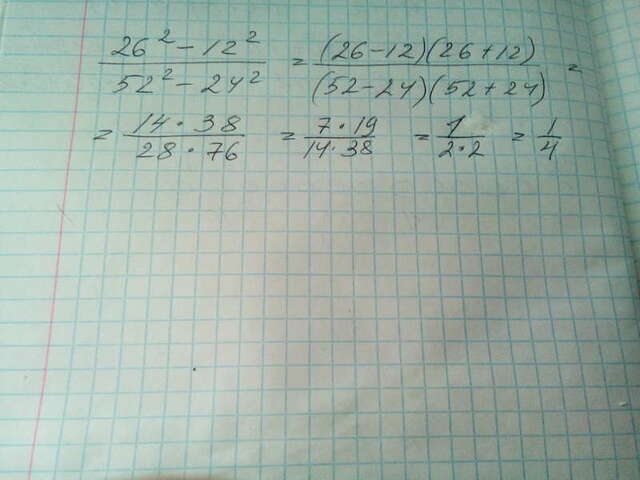 26² - 12² / 52² - 24² = (26-12)(26+12) / (52-24)(52+24) =
= 14·38 / 28·76 = 7·19 / 14·38 = 1 / 2·2 = 1/4